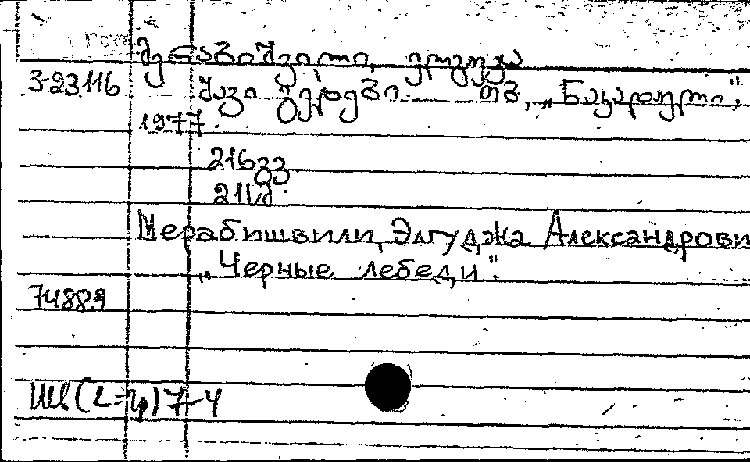 მერაბიშვილი, ელგუჯა
3-23.116
შავი გედები. თბ., „ნაკადული",
1977.
216 გვ.
Мерабишвили, Элгуджа Александрови
„Черные лебеди".
7488.9